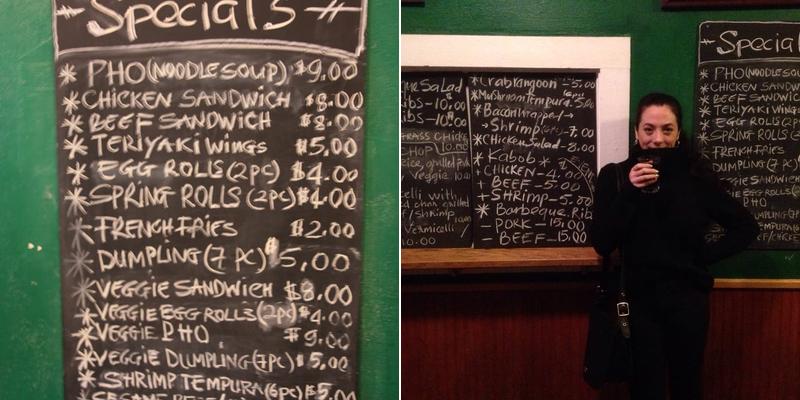 Specials
* PHO(NOODLE SOUP) $9.00
* CHICKEN SANDWICH $8.00
* BEEF SANDWICH $8.00
* TERIYAKI WINGS $5.00
* EGG ROLLS (2PC) $4.00
* SPRING ROLLS (2PC) $4.00
* FRENCH FRIES $2.00
* DUMPLING (7 PC) $5.00
* VEGGIE SANDWICH $8.00
* VEGGIE EGG ROLLS (2PC) $4.00
* VEGGIE PHO $9.00
* VEGGIE DUMPLING (7PC) $5.00
* SHRIMP TEMPURA (6PC) $5.00
Salad
ibs-10.00
ibs-10.00
celli with
Vermicelli
10.00
* Crabrangoon - 5.00
* Mushroom Tempura 5.00
* Bacon Wrapped→
Shrimp 7.00
* Chicken Salad - 8.00
* Kabob *
+ CHICKEN - 4.00
+ BEEF - 5.00
+ SHRIMP - 5.00
* Barbeque Rib
- PORK - 15.00
- BEEF - 15.00
Special
* PHO(NOODLE SOUP)
* CHICKEN SANDW
* BEEF SANDWICH
* TERIYAKI WING
* EGG ROLLS (2PC
* SPRING ROLLS (2
* FRENCH FRIES
* DUMPLING (7 PC)